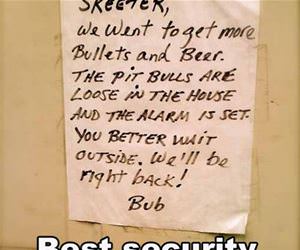 SKEETER,
we went to get more
Bullets and Beer.
THE PIT BULLS ARE
LOOSE IN THE HOUSE
AND THE ALARM IS SET.
YOU BETTER WAIT
OUTSIDE. We'll be
right back!
Bub
Best security